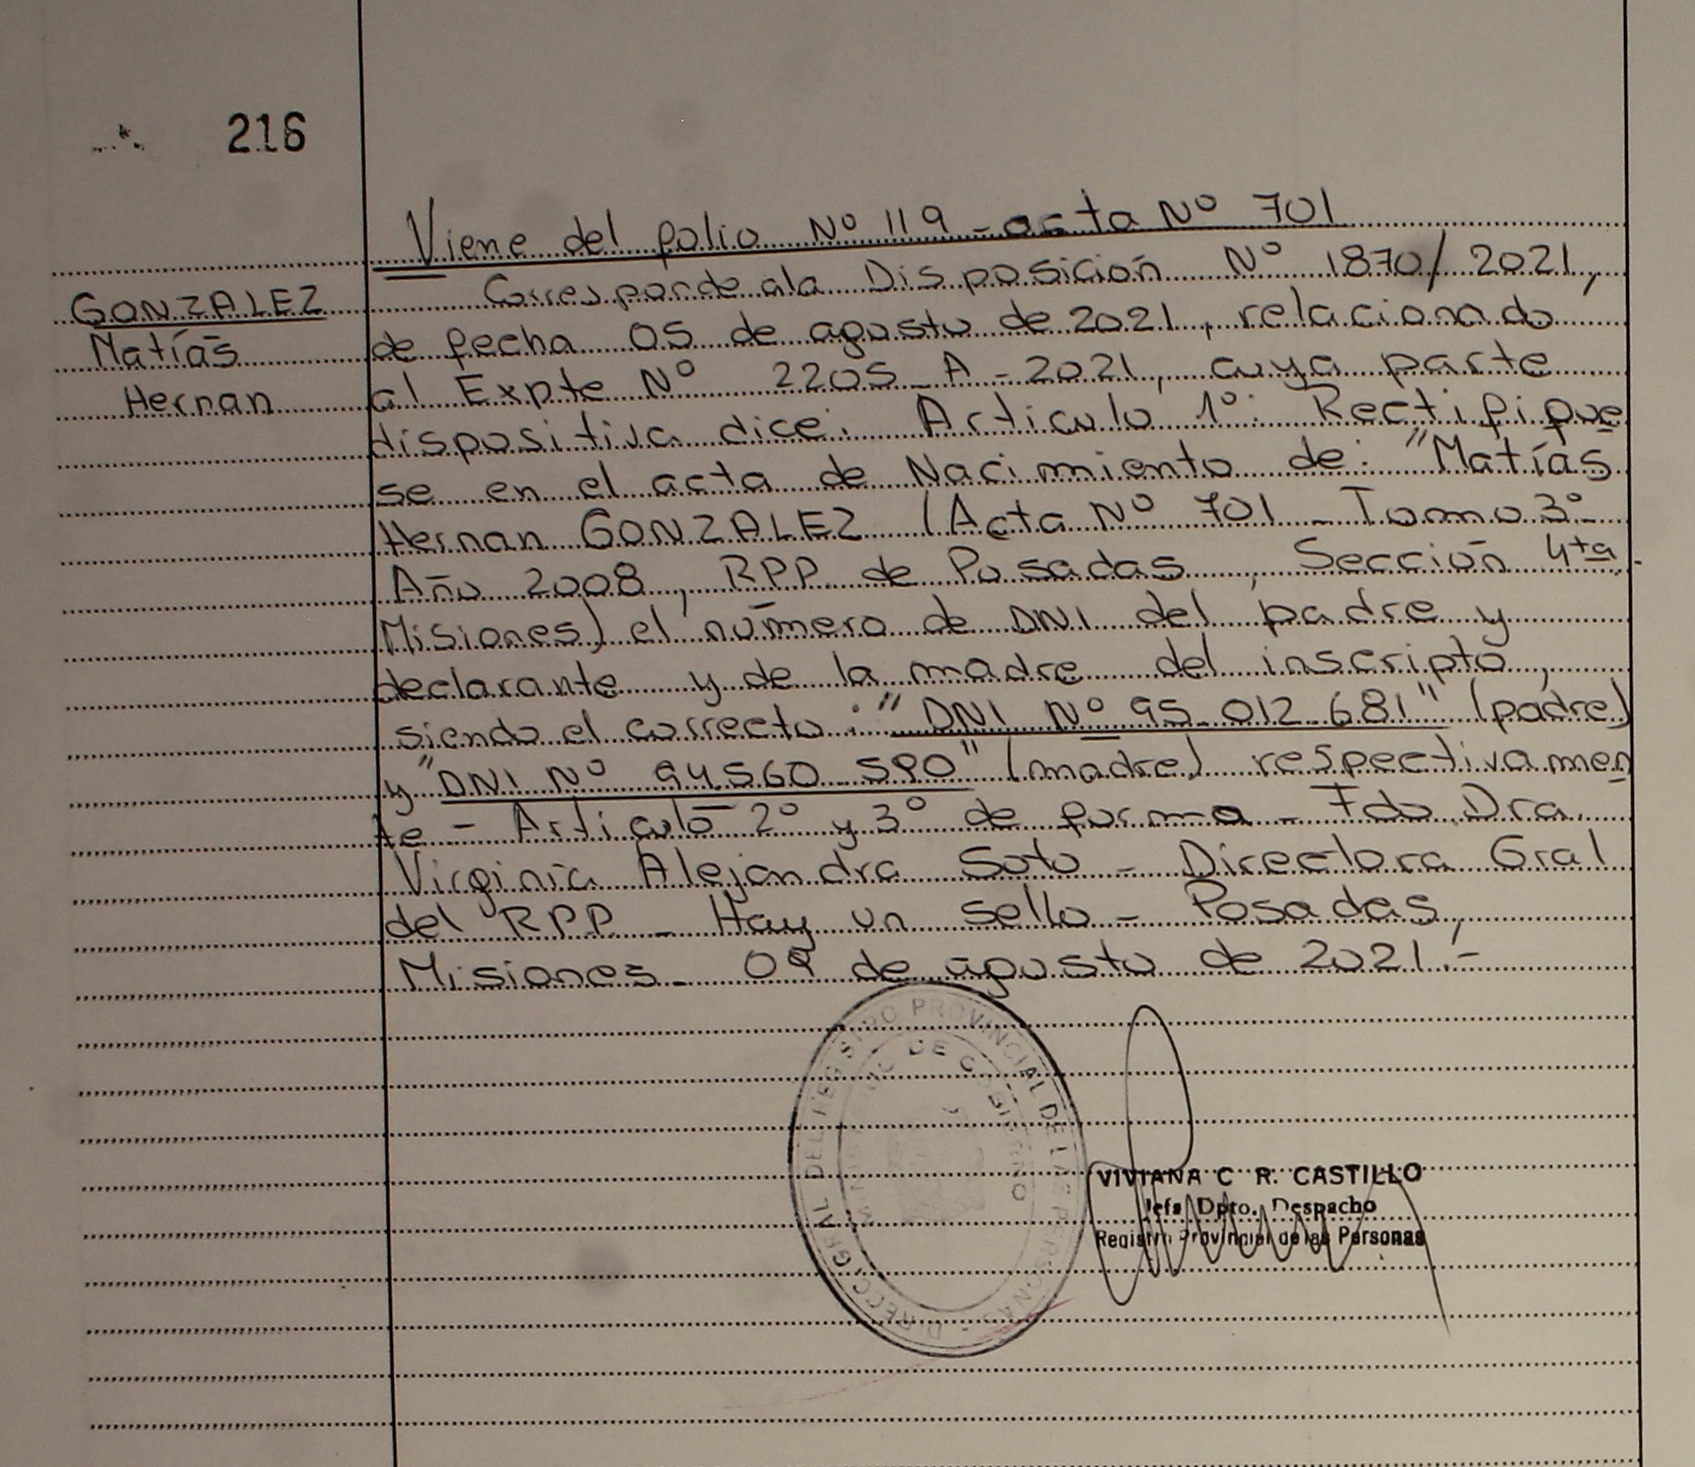 216
Viene del folio Nº 119 - acta Nº 701
GONZALEZ
Matías
Hernan
Corresponde a la Disposición Nº 1870/2021,
de fecha 05 de agosto de 2021, relacionado
al Expte Nº 2205 - A - 2021, cuya parte
dispositiva dice: Articulo 1º: Rectifique
se en el acta de Nacimiento de: "Matías
Hernan GONZALEZ (Acta Nº 701 - Tomo 3º
Año 2008, RPP de Posadas, Sección 4ta
Misiones) el número de DNI del padre y
declarante y de la madre del inscripto,
siendo el correcto: "DNI Nº 95 012 681" (padre)
y "DNI Nº 94560 590" (madre) respectivamen
te - Articulo 2º y 3º de forma - Fdo Dra.
Virginia Alejandra Soto - Directora Gral
del RPP - Hay un sello - Posadas,
Misiones - 09 de agosto de 2021.-
DIRECC. GRAL DEL REGISTRO PROVINCIAL DE LAS PERSONAS
DE GOBIERNO
VIVIANA C R. CASTILLO
Jefa Dpto. Despacho
Registro Provincial de las Personas